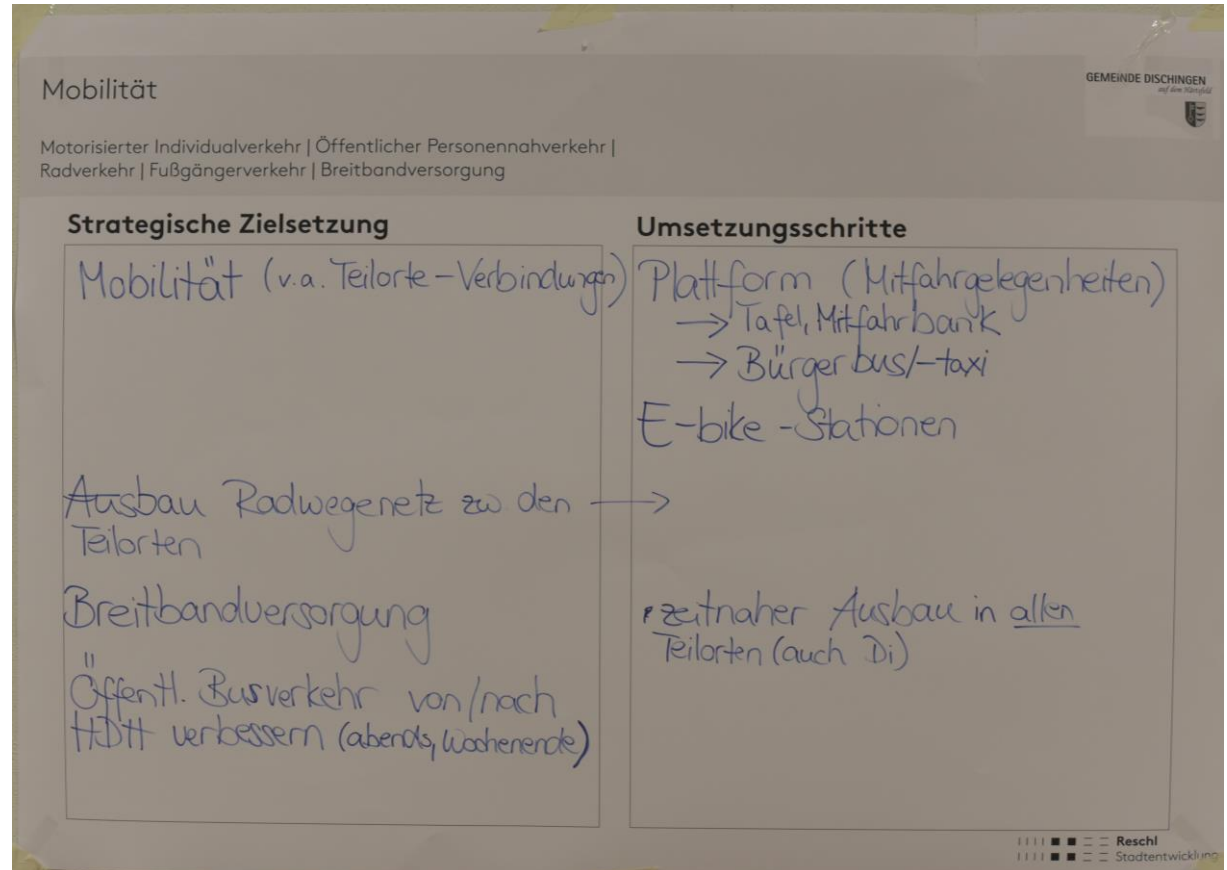 Mobilität
GEMEINDE DISCHINGEN
auf dem Härtsfeld
Motorisierter Individualverkehr | Öffentlicher Personennahverkehr |
Radverkehr | Fußgängerverkehr | Breitbandversorgung
Strategische Zielsetzung
Mobilität (v.a. Teilorte-Verbindungen)
Ausbau Radwegenetz zw. den →
Teilorten
Breitbandversorgung
Öffentl. Busverkehr von/nach
HDH verbessern (abends, Wochenende)
Umsetzungsschritte
Plattform (Mitfahrgelegenheiten)
→ Tafel, Mitfahrbank
→ Bürgerbus/-taxi
E-bike-Stationen
zeitnaher Ausbau in allen
Teilorten (auch Di)
Reschl
Stadtentwicklung